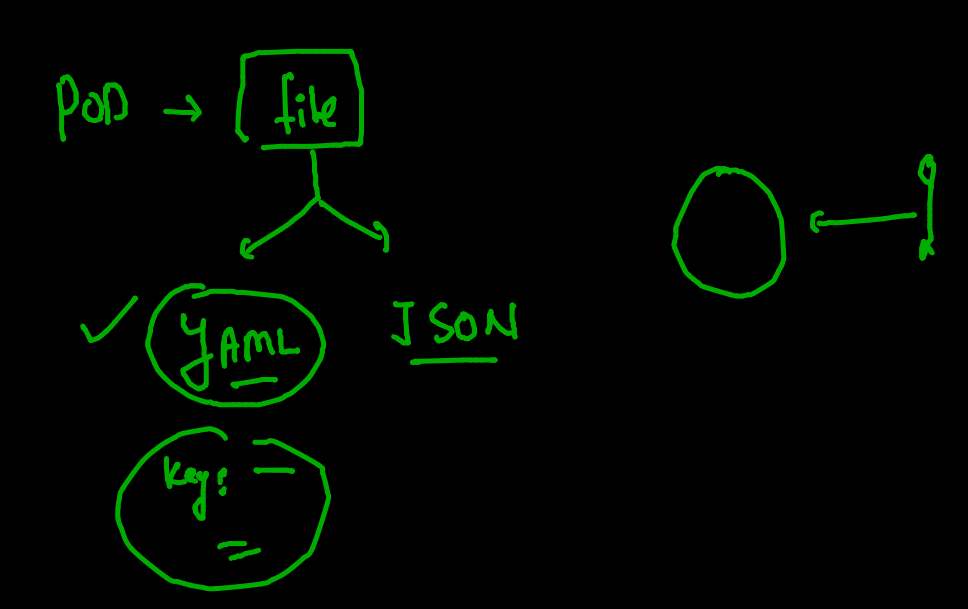 POD → file
YAML JSON
key: